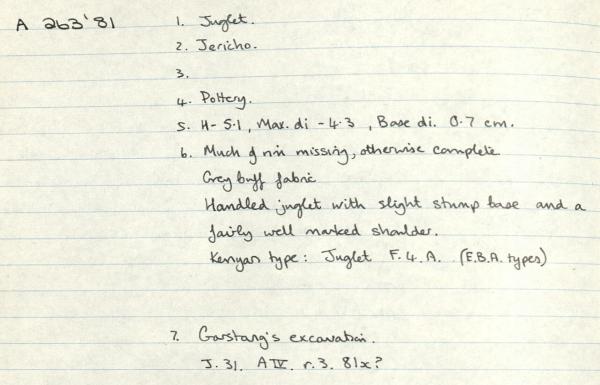 A 263'81
1. Juglet.
2. Jericho.
3.
4. Pottery.
5. H- 5.1, Max. di - 4.3, Base di. 0.7 cm.
6. Much of rim missing, otherwise complete
Grey buff fabric
Handled juglet with slight stump base and a
fairly well marked shoulder.
Kenyan type: Juglet F.4.A. (E.B.A. types)
7. Garstang's excavation.
J.31. A IV. r.3. 81x?